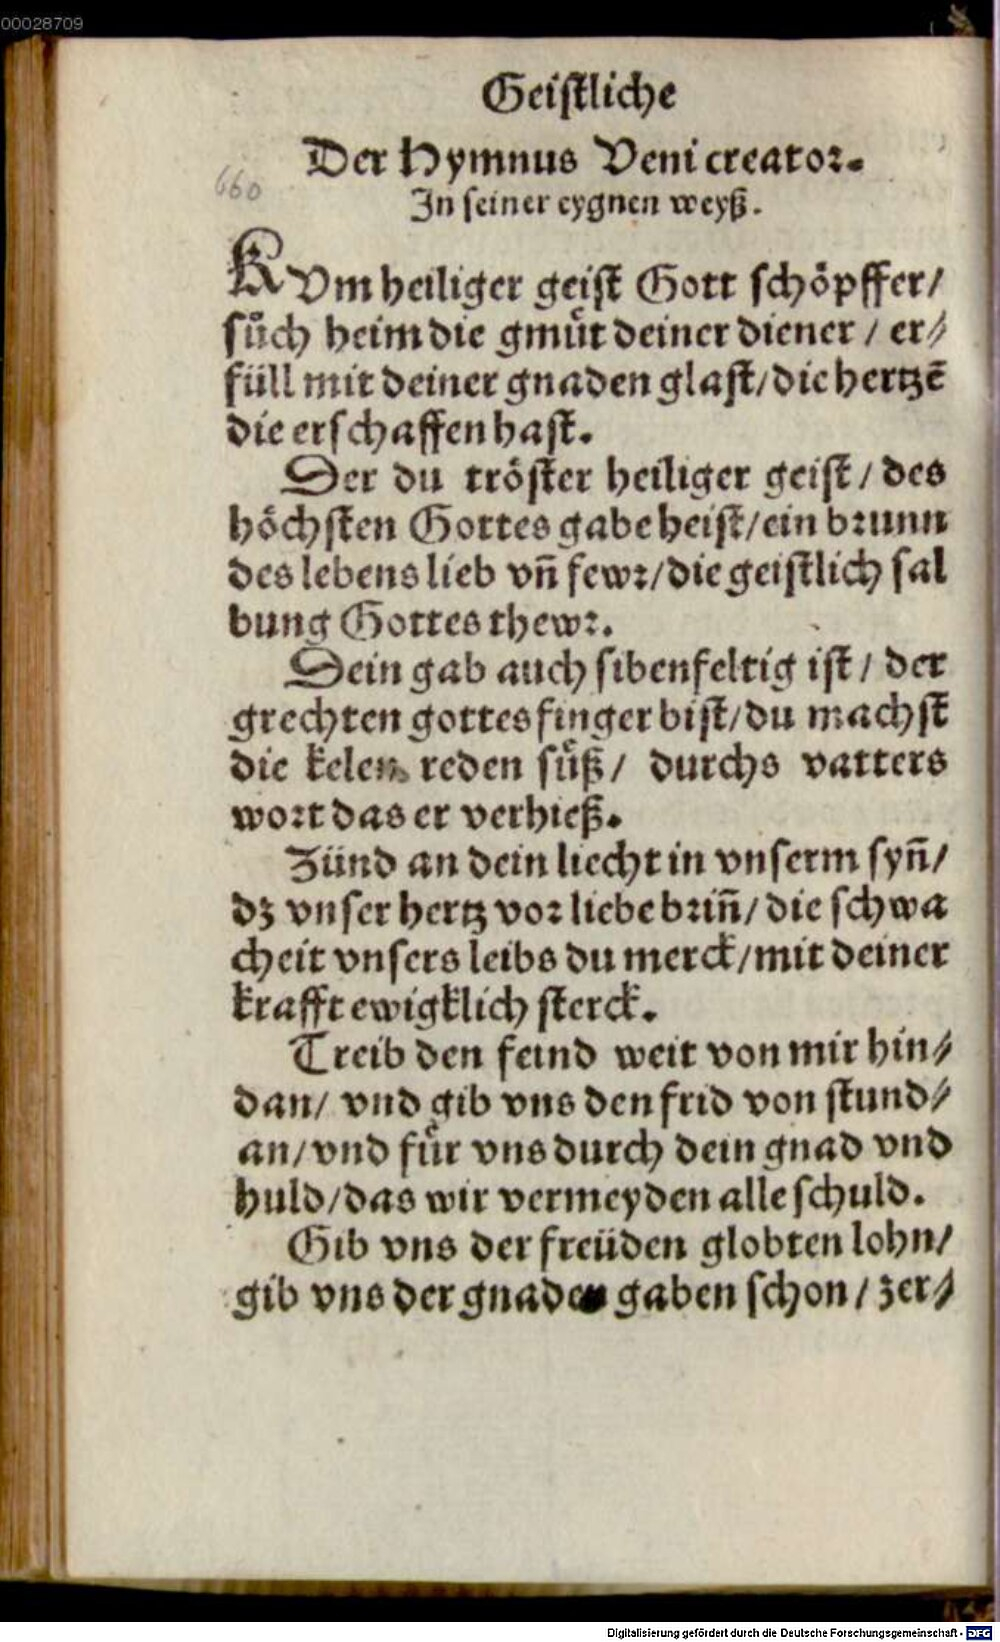 00028709
Geistliche
Der Hymnus Veni creator.
660
In seiner eygnen weyß.
KVm heiliger geist Gott schöpffer/
sůch heim die gmüt deiner diener / er⸗
füll mit deiner gnaden glast/die hertzē
die erschaffen hast.
Der du tröster heiliger geist / des
höchsten Gottes gabe heist/ein brunn
des lebens lieb vn̄ fewr/die geistlich sal
bung Gottes thewr.
Dein gab auch sibenfeltig ist / der
grechten gottes finger bist/du machst
die kelen reden süß/ durchs vatters
wort das er verhieß.
Zünd an dein liecht in vnserm syn̄/
dz vnser hertz vor liebe brin̄/die schwa
cheit vnsers leibs du merck/mit deiner
krafft ewigklich sterck.
Treib den feind weit von mir hin⸗
dan/ vnd gib vns den frid von stund⸗
an/vnd für vns durch dein gnad vnd
huld/das wir vermeyden alle schuld.
Gib vns der freüden globten lohn/
gib vns der gnaden gaben schon / zer⸗
Digitalisierung gefördert durch die Deutsche Forschungsgemeinschaft - DFG